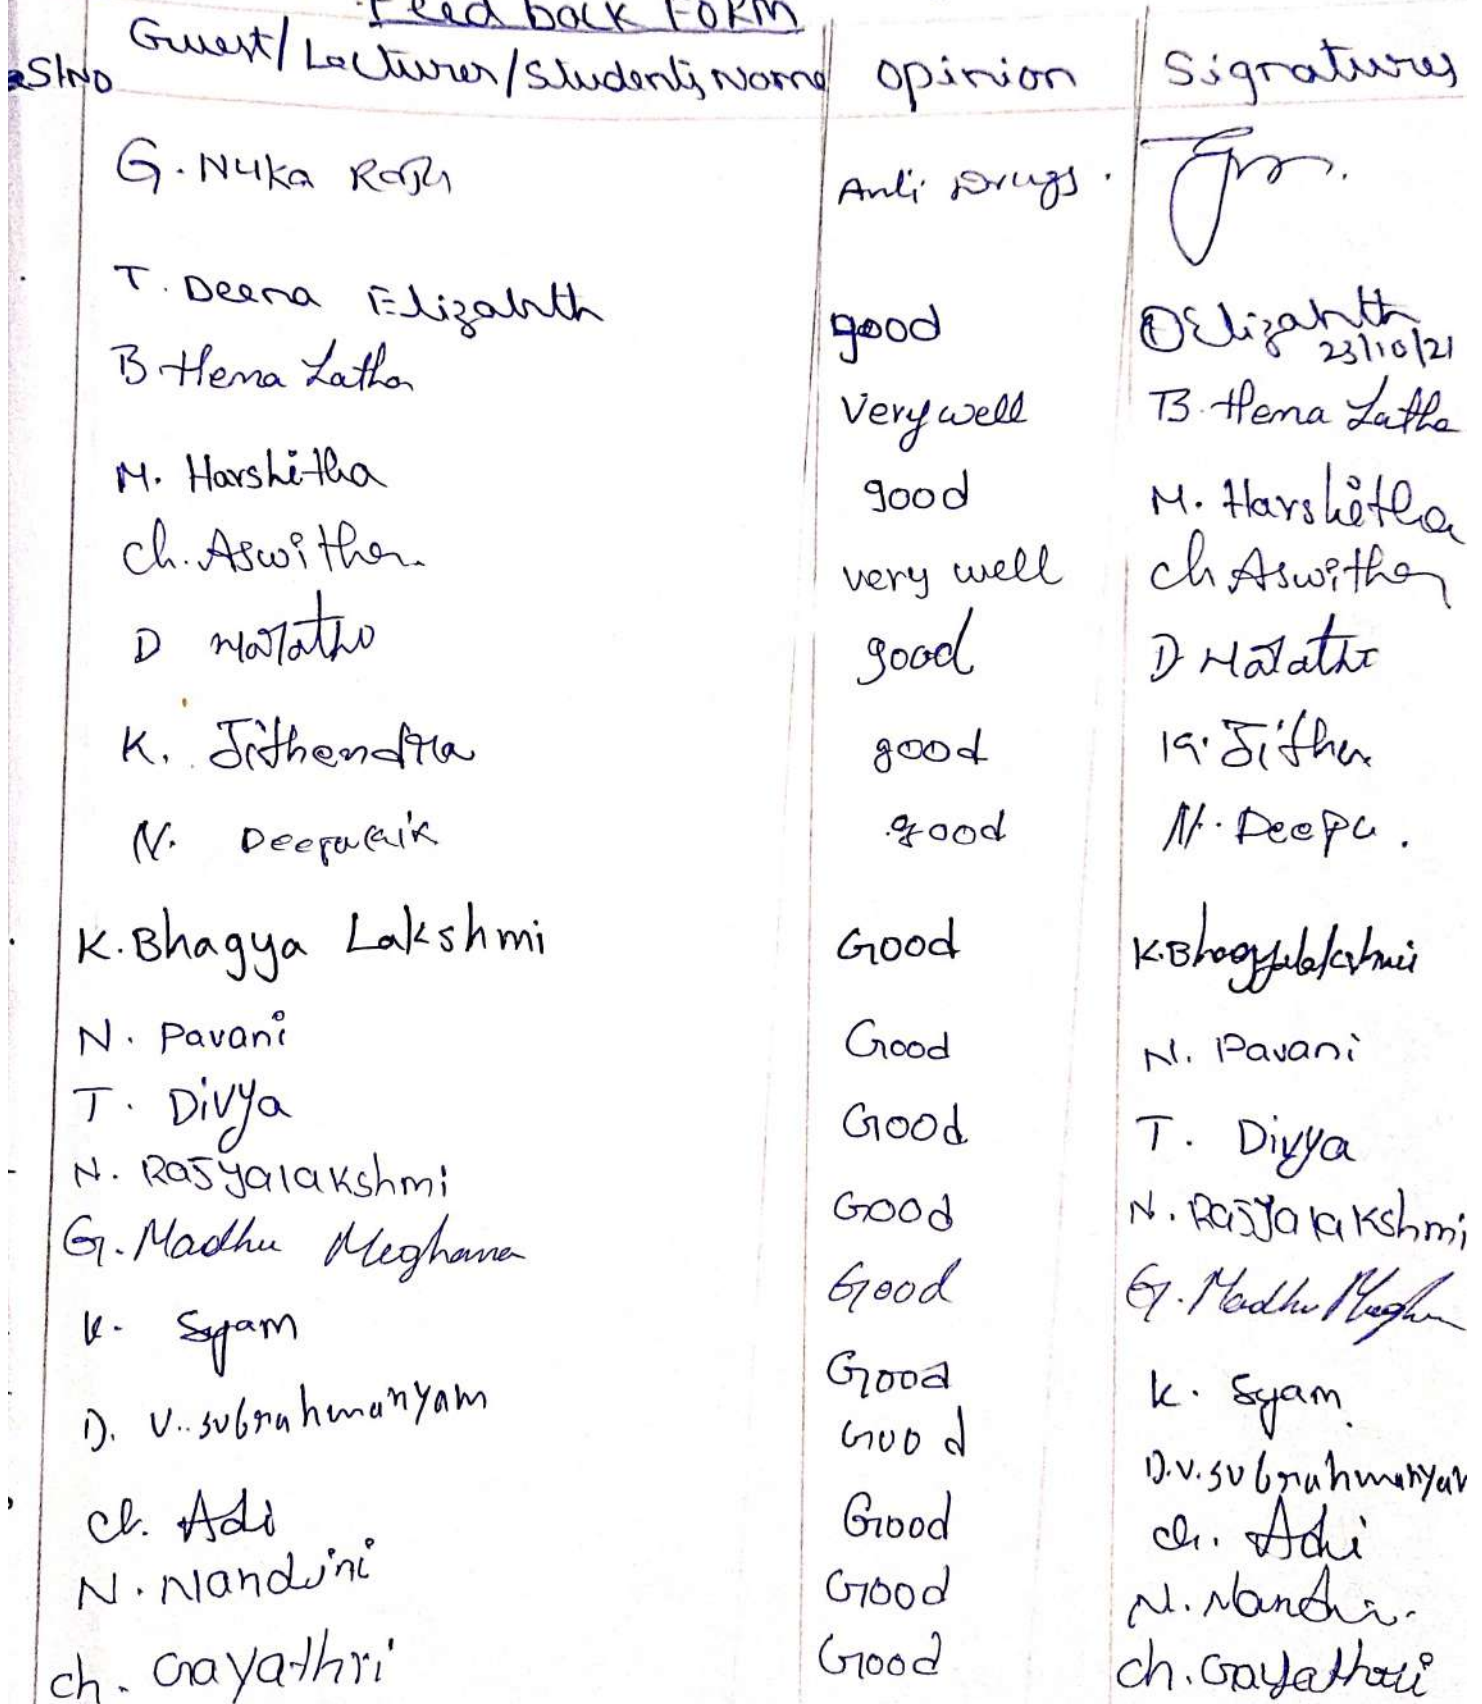 Feed back FORM
SlNo Guest/Lecturer/Students Name opinion Signatures
G. Nuka Raju Anti Drugs.
T. Deena Elizabeth good DElizabeth
23/10/21
B Hema Latha Very well B. Hema Latha
M. Harshitha good M. Harshitha
Ch. Aswitha very well Ch Aswitha
D Malathi good D Malathi
K. Jithendra good K. Jithen
N. good N. Deepu.
K. Bhagya Lakshmi Good K. Bhagyalakshmi
N. Pavani Good N. Pavani
T. Divya Good T. Divya
N. Rajyalakshmi Good N. Rajyalakshmi
G. Madhu Meghana Good G. Madhu Megha
K. Syam Good K. Syam
D. V. Subrahmanyam Good D.V. Subrahmanyam
Ch. Adi Good Ch. Adi
N. Nandini Good N. Nandi
Ch. Gayathri Good Ch. Gayathri